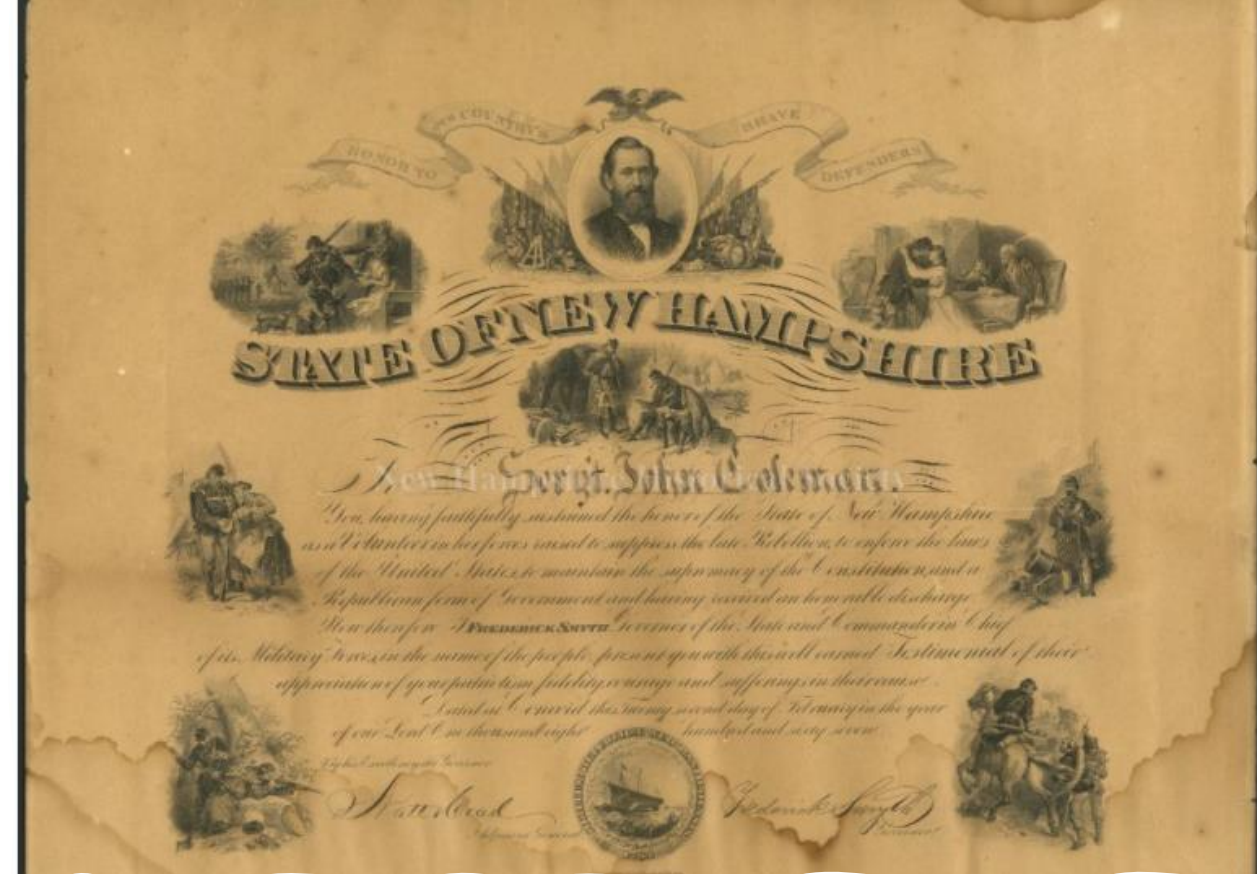 HONOR TO HER COUNTRY'S BRAVE DEFENDERS
STATE OF NEW HAMPSHIRE
To Sergt. John Coleman.
New Hampshire Historical Society
You, having faithfully sustained the honor of the State of New Hampshire
as a Volunteer in her forces raised to suppress the late Rebellion, to enforce the laws
of the United States, to maintain the supremacy of the Constitution, and a
Republican form of Government and having received an honorable discharge
Now therefore I FREDERICK SMYTH Governor of the State and Commander in Chief
of its Military Forces, in the name of the people, present you with this well earned Testimonial of their
appreciation of your patriotism, fidelity, courage and sufferings in their cause.
Dated at Concord this twenty second day of February in the year
of our Lord One thousand eight hundred and sixty seven
By his Excellency the Governor
Natt Head
Frederick Smyth
Adjutant General
Governor